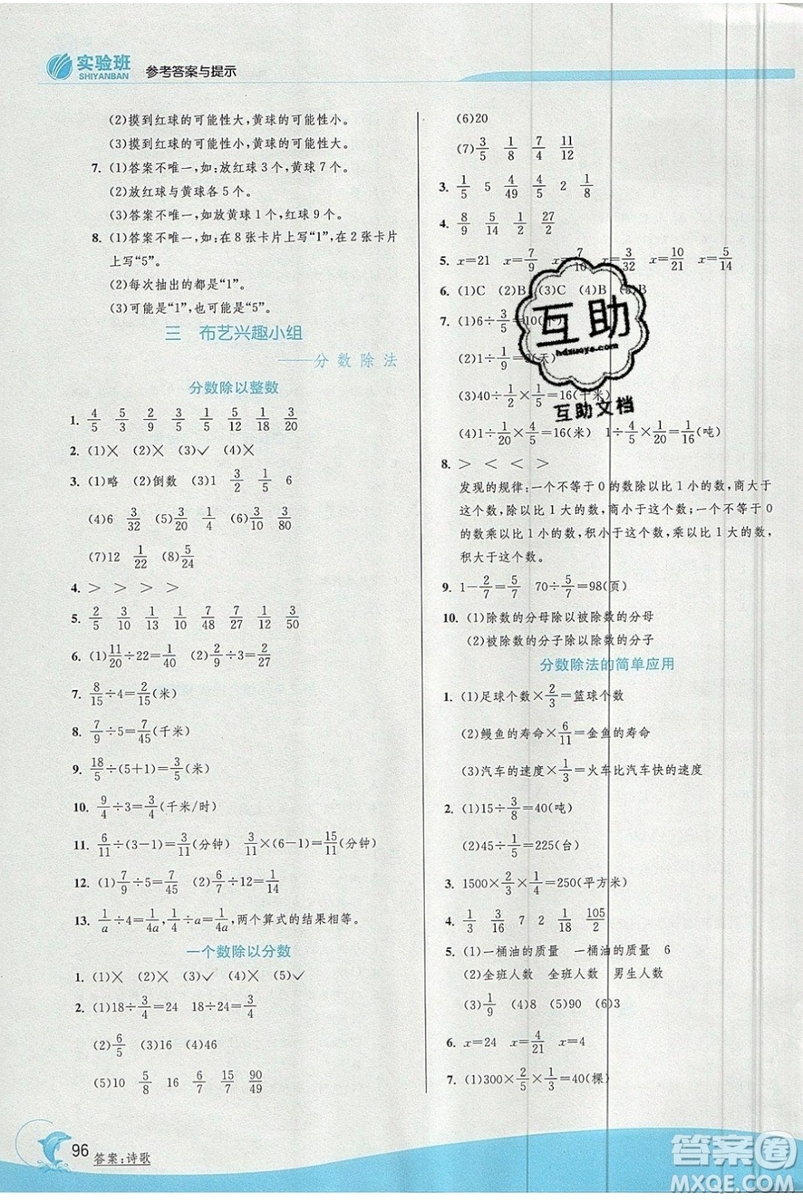 实验班
SHIYANBAN
参考答案与提示
(2)摸到红球的可能性大,黄球的可能性小。
(3)摸到红球的可能性小,黄球的可能性大。
7. (1)答案不唯一,如:放红球3个,黄球7个。
(2)放红球与黄球各5个。
(3)答案不唯一,如放黄球1个,红球9个。
8. (1)答案不唯一,如:在8张卡片上写“1”,在2张卡片
上写“5”。
(2)每次抽出的都是“1”。
(3)可能是“1”,也可能是“5”。
三 布艺兴趣小组
——分数除法
分数除以整数
1. 4/5 5/3 2/9 3/5 1/5 5/12 1/18 3/20
2. (1)× (2)× (3)✓ (4)×
3. (1)略 (2)倒数 (3)1 3/2 1/5 6
(4)6 3/32 (5)3/20 1/4 (6)3/10 3/80
(7)12 1/22 (8)5/24
4. > > > >
5. 2/5 3/10 1/10 7/48 7/27 1/11 3/50
6. (1)11/20÷22=1/40 (2)2/9÷3=2/27
7. 8/15÷4=2/15(米)
8. 7/9÷5=7/45(米)
9. 18/5÷(5+1)=3/5(米)
10. 9/4÷3=3/4(千米/时)
11. 6/11÷(3-1)=3/11(分钟) 3/11×(6-1)=15/11(分钟)
12. (1)7/9÷5=7/45 (2)6/7÷12=1/14
13. 1/a÷4=1/4a,1/4÷a=1/4a,两个算式的结果相等。
一个数除以分数
1. (1)× (2)× (3)✓ (4)× (5)✓
2. (1)18÷3/4=24 18÷3/4=24
(2)6/5 (3)16 (4)46
(5)10 5/8 16 6/7 6/7 90/49
(6)20
(7)3/5 1/8 7/4 11/12
3. 1/5 5 4/49 4/5 2 1/8
4. 8/9 5/14 1/2 27/2
5. x=21 x=7/9 x=7/10 x=3/32 x=10/21 x=5/14
6. (1)C (2)B (3)C (4)B
7. (1)6÷3/5=10
(2)1÷
(3)40÷1/2×1/5=16(千米)
(4)1÷1/20×4/5=16(米) 1÷4/5×1/20=1/16(吨)
8. > < < >
发现的规律:一个不等于0的数除以比1小的数,商大于
这个数,除以比1大的数,商小于这个数;一个不等于0
的数乘以比1小的数,积小于这个数,乘以比1大的数,
积大于这个数。
9. 1-2/7=5/7 70÷5/7=98(页)
10. (1)除数的分母除以被除数的分母
(2)被除数的分子除以除数的分子
分数除法的简单应用
1. (1)足球个数×2/3=篮球个数
(2)鳗鱼的寿命×6/11=金鱼的寿命
(3)汽车的速度×1/3=火车比汽车快的速度
2. (1)15÷3/8=40(吨)
(2)45÷1/5=225(台)
3. 1500×2/3×1/4=250(平方米)
4. 1/3 3/16 7 2 1/18 105/2
5. (1)一桶油的质量 一桶油的质量 6
(2)全班人数 全班人数 男生人数
(3)1/9 (4)8 (5)90 (6)3
6. x=24 x=4/21 x=4
7. (1)300×2/5×1/3=40(棵)
互助
hdzuoye.com
互助文档
96
答案:诗歌
答案圈
MXQE.COM